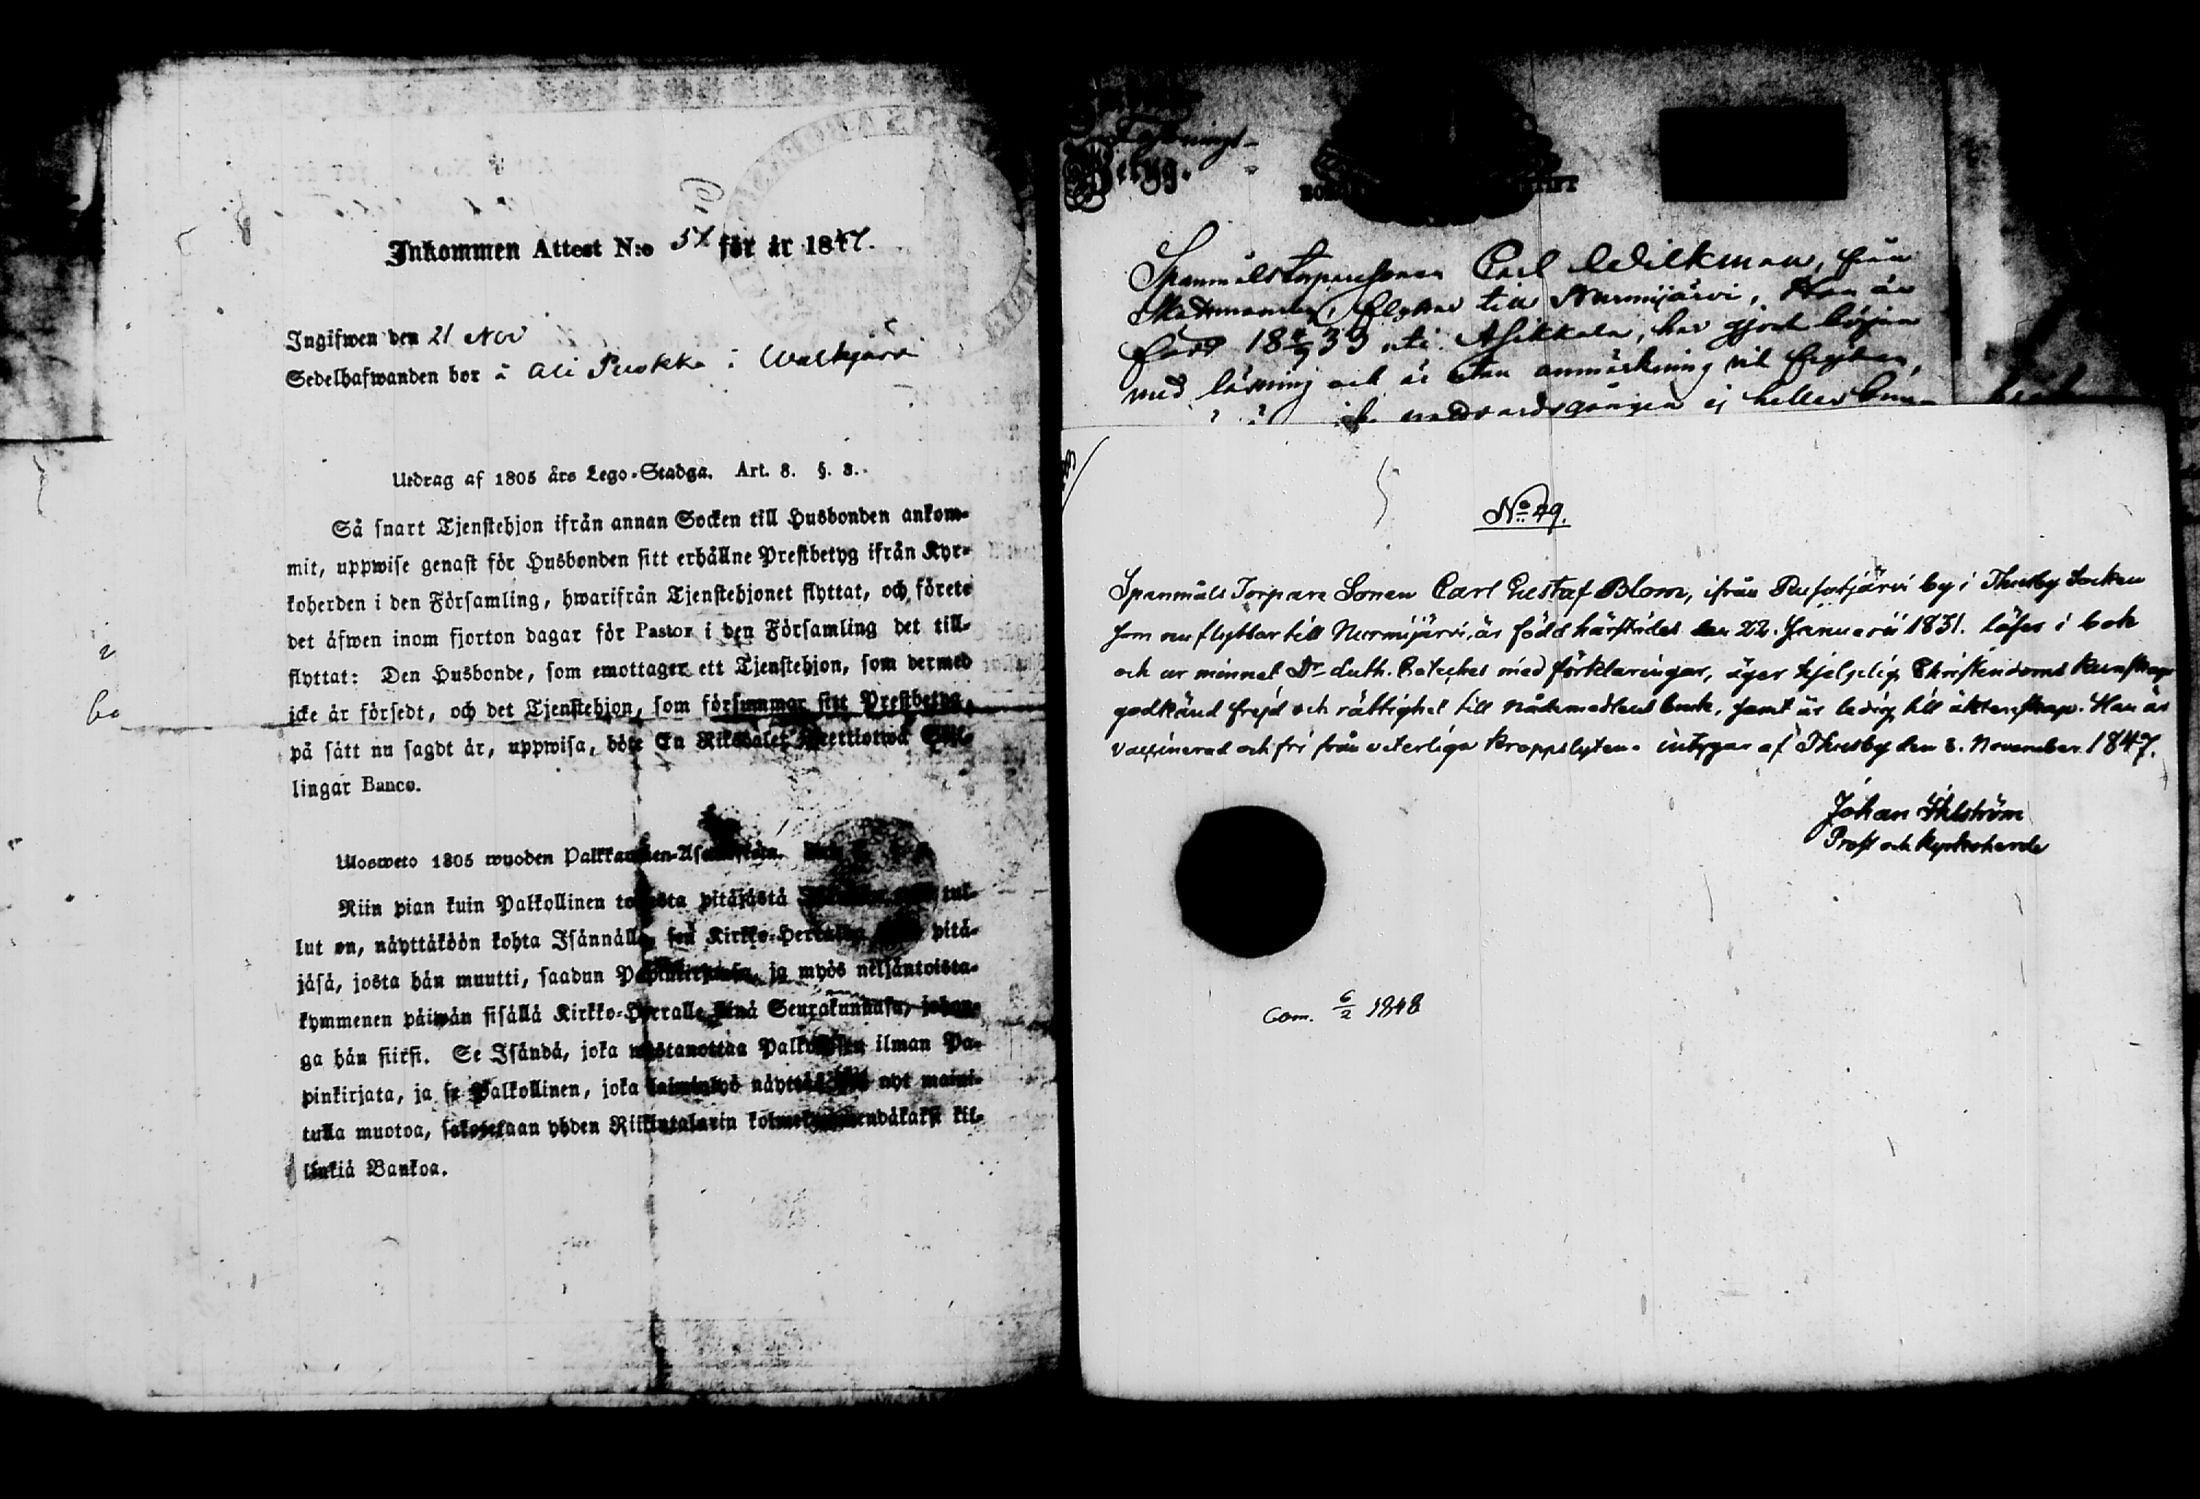 Inkommen Attest N:o 57 för år 1847.
Ingifwen den 21 Nov
Sedelhafwanden bor å Ali Puokka i Walkjärvi
Utdrag af 1805 års Lego-Stadga. Art. 8. §. 8.
Så snart Tjenstehjon ifrån annan Socken till Husbonden ankom-
mit, uppwise genast för Husbonden sitt erhållne Prestbetyg ifrån Kyr-
koherden i den Församling, hwarifrån Tjenstehjonet flyttat, och förete
det äfwen inom fjorton dagar för Pastor i den Församling det till-
flyttat: Den Husbonde, som emottager ett Tjenstehjon, som dermed
icke är försedt, och det Tjenstehjon, som försummar sitt Prestbetyg,
på sätt nu sagdt är, uppwisa, böte En Riksdaler Trettiotwå Skil-
lingar Banco.
Ulosweto 1805 wuoden Palkkawäen-Asetuksesta.
Niin pian kuin Palkollinen toisesta pitäjästä tul-
lut on, näyttäköön kohta Isännälle, sen Kirkko-Herralta pitä-
jäsä, josta hän muutti, saadun Papinkirjansa, ja myös neljäntoista-
kymmenen päiwän sisällä Kirkko-Herralle siinä Seurakunnasa, johon-
ga hän siirsi. Se Isändä, joka wastanottaa Palkollisen ilman Pa-
pinkirjata, ja se Palkollinen, joka laiminlyö näyttää sitä nyt maini-
tulla muotoa, sakotetaan yhden Riikintalarin kolmekymmendäkaksi kil-
linkiä Bankoa.
Betyg.
Spanmåls Torparesonen Carl Wilkman, från
flyttar till Nurmijärvi, Han är
född 18 33 uti Asikkala, har gjort början
med läsning och är utan anmärkning till frejden,
nattvardsgången ej heller
No 49.
Spanmåls Torpare Sonen Carl Gustaf Blom, ifrån Rusutjärvi by i Thusby Socken
som nu flyttar till Nurmijärvi, är född härstädes den 22. Januarii 1831. läser i bok
och ur minnet Dr Luth. Cateches med förklaringar, äger hjelplig Christendoms kunskap
godkänd frejd och rättighet till nådemedlens bruk, samt är ledig till äktenskap. Han är
vaccinerad och fri från veterliga kroppslyten. intygar af Thusby den 8. November 1847.
Johan Ahlström
Prost och Kyrkoherde
Com. 6/2 1848